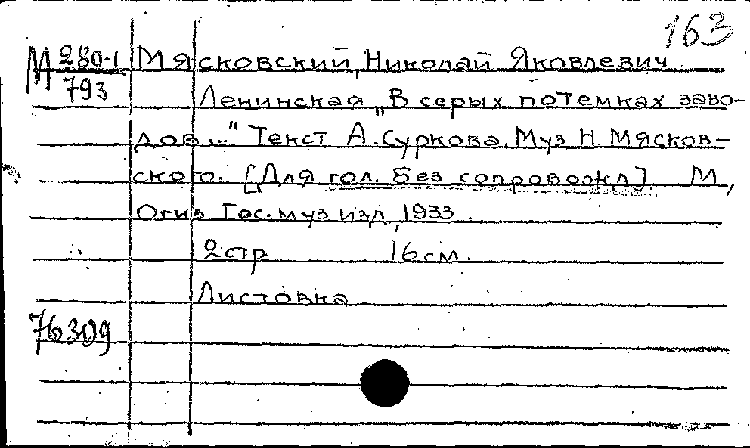 163
М 280-1 Мясковский, Николай Яковлевич
793
Ленинская „В серых потемках заво-
дов..." Текст А. Суркова. Муз Н. Мясков-
ского. [Для гол. без сопровожд] М,
Огиз Гос. муз изд, 1933
2 стр 16 см.
Листовка
76309